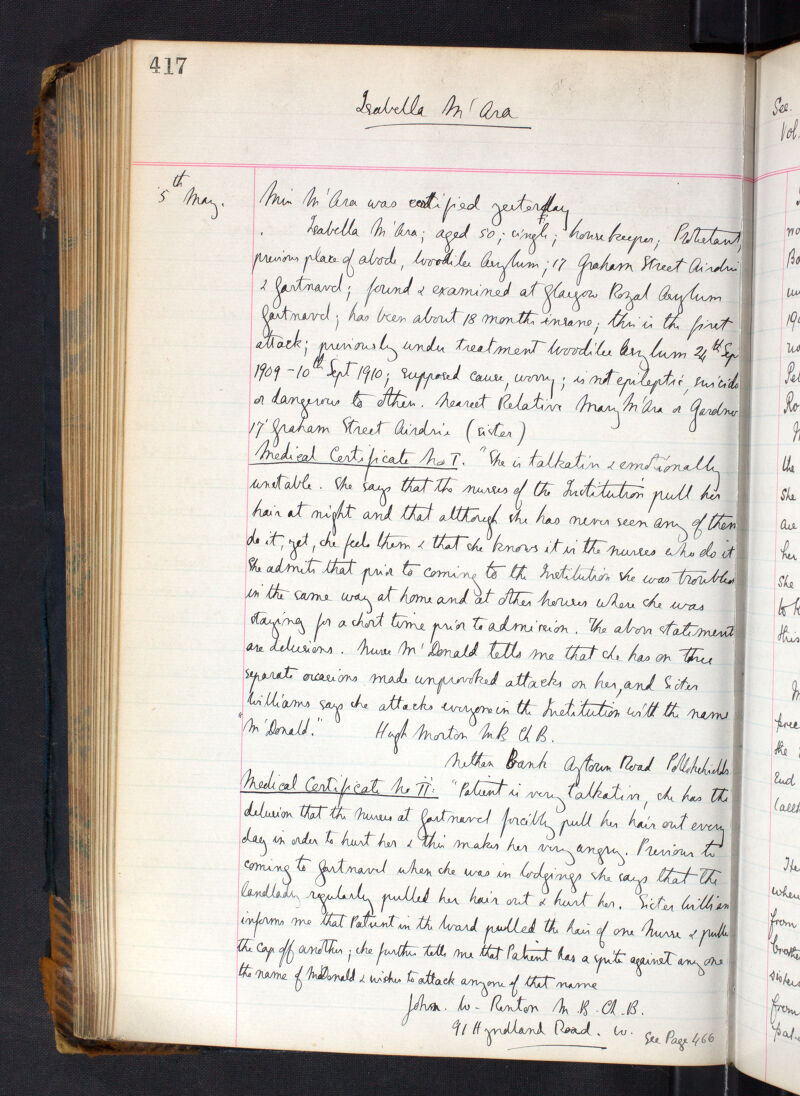 417
Isabella M'Ara
5th May.
Miss M'Ara was certified yesterday
Isabella M'Ara; aged 50; single; housekeeper; Protestant,
previous place of abode, Woodilee Asylum; 17 Graham Street Airdrie
& Gartnavel; found & examined at Glasgow Royal Asylum
Gartnavel; has been about 18 months insane; this is the first
attack; previously under treatment Woodilee Asylum 24th Sep
1909 - 10th Sept 1910; supposed cause, worry; is not epileptic, suicida
or dangerous to others. Nearest Relative Mary M'Ara or Gardner
17 Graham Street Airdrie (sister)
Medical Certificate No I. "She is talkative & emotionally
unstable. She says that the nurses of the Institution pull her
hair at night and that although she has never seen any of them
do it, yet, she feels them & that she knows it is the nurses who do it
She admits that prior to coming to the Institution she was troubled
in the same way at home and at other houses where she was
staying for a short time prior to admission. The above statements
are delusions. Nurse M'Donald tells me that she has on three
separate occasions made unprovoked attacks on her, and Sister
Williams says she attacks everyone in the Institution with the name
"M'Donald." Hugh Morton MB Ch B.
Nethan Bank Aytoun Road Pollokshields
Medical Certificate No II: "Patient is very talkative, she has the
delusion that the nurses at Gartnavel forcibly pull her hair out every
day in order to hurt her & this makes her very angry. Previous to
coming to Gartnavel when she was in lodgings she says that the
landlady regularly pulled her hair out & hurt her. Sister William
informs me that Patient in the Ward pulled the hair of one Nurse & pulle
the cap off another; she further tells me that Patient has a spite against any one
the name of McDonald & wishes to attack anyone of that name
John W. Renton M.B. Ch.B.
91 Hyndland Road. W.
See Page 466
See
Vol.
no
Bo
190
Pet
Ro
the
she
are
her
She
to k
this
the
End
Ite
when
from
brothe
sisters
from